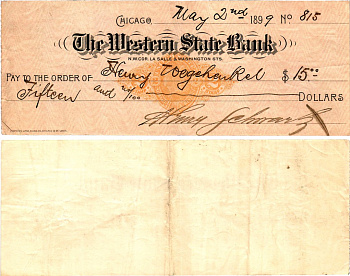 Chicago, May 2nd 1899 No 815
The Western State Bank
N.W. COR. LA SALLE & WASHINGTON STS.
Pay to the order of Henry Wegehenkel $15.00
Fifteen and no/100 Dollars
Henry Schwartz